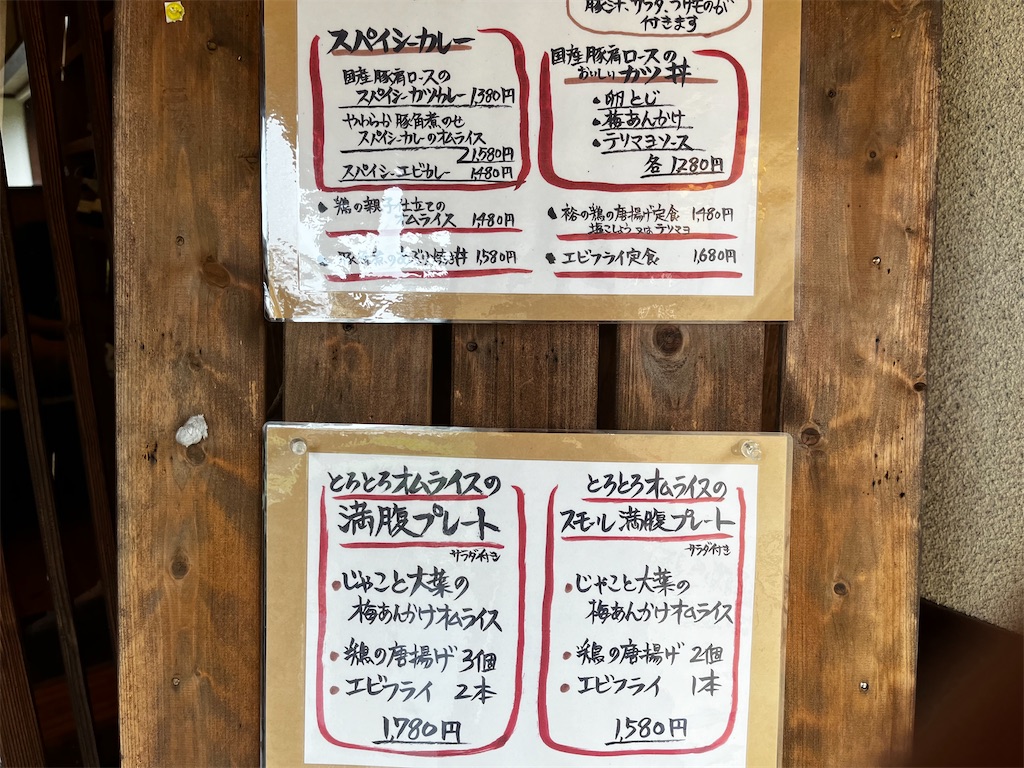 豚汁、サラダ、つけものが
付きます
スパイシーカレー
国産豚肩ロースの
スパイシーカツカレー 1,380円
やわらか豚角煮のせ
スパイシーカレーのオムライス
1,580円
スパイシーエビカレー 1,480円
国産豚肩ロースの
おいしいカツ丼
・卵とじ
・梅あんかけ
・テリマヨソース
各 1,280円
鶏の親子仕立ての
オムライス 1,480円
丼 1,580円
裕の鶏の唐揚げ定食 1,480円
塩こしょう 又は テリマヨ
エビフライ定食 1,680円
とろとろオムライスの
満腹プレート
サラダ付き
・じゃこと大葉の
梅あんかけオムライス
・鶏の唐揚げ 3個
・エビフライ 2本
1,780円
とろとろオムライスの
スモール満腹プレート
サラダ付き
・じゃこと大葉の
梅あんかけオムライス
・鶏の唐揚げ 2個
・エビフライ 1本
1,580円